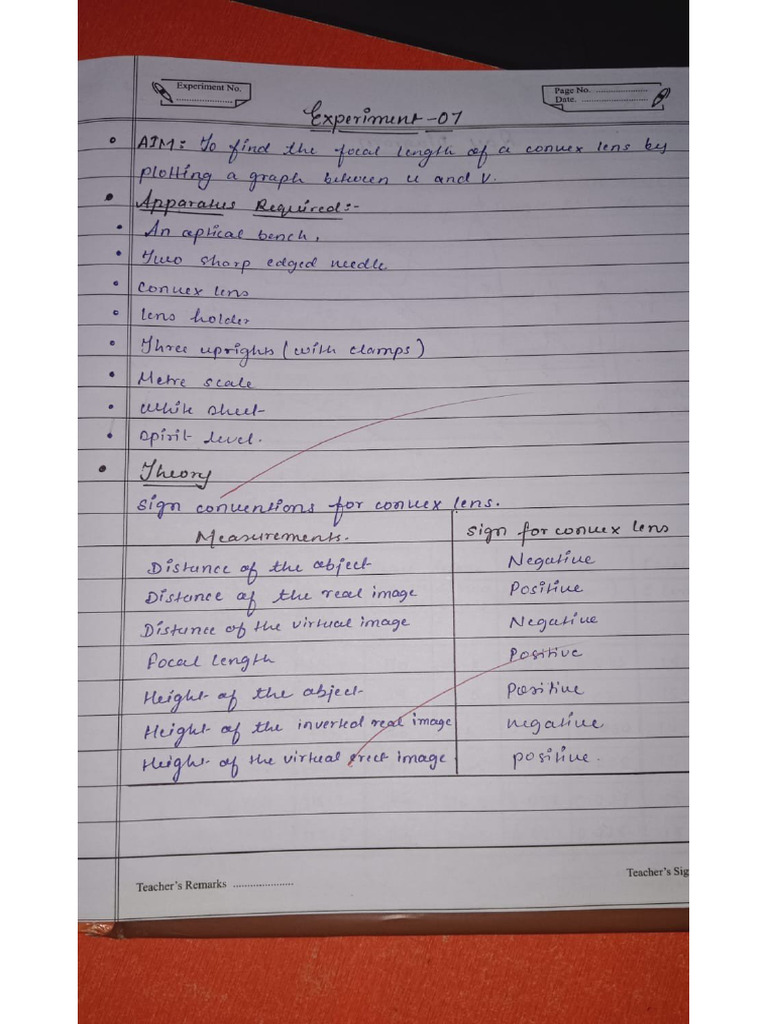 Experiment No.
Page No.
Date.
Experiment-07
AIM: To find the focal length of a convex lens by
plotting a graph between u and v.
Apparatus Required:-
An optical bench,
Two sharp edged needle
convex lens
lens holder
Three uprights (with clamps)
Metre scale
White sheet
Spirit level.
Theory
Sign conventions for convex lens.
Measurements. Sign for convex lens
Distance of the object Negative
Distance of the real image Positive
Distance of the virtual image Negative
focal length Positive
Height of the object Positive
Height of the inverted real image negative
Height of the virtual erect image positive.
Teacher's Remarks
Teacher's Sig